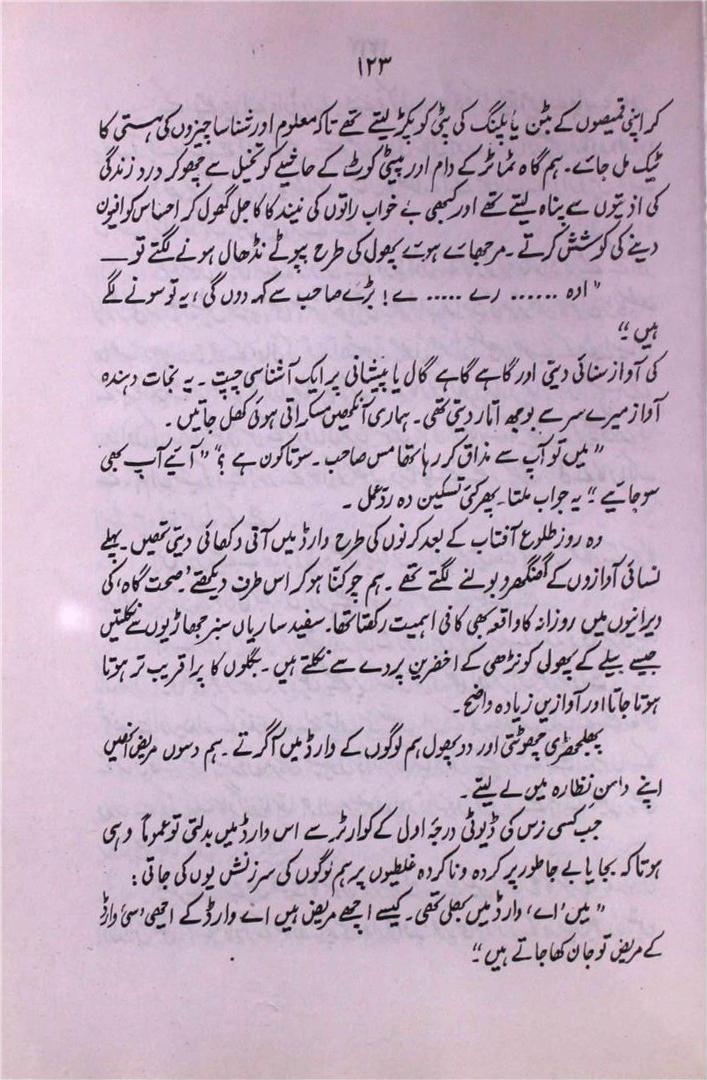 ۱۲۳
کر اپنی قمیصوں کے بٹن یا پلنگ کی پٹی کو پکڑ لیتے تھے تاکہ معلوم اور شناسا چیزوں کی ہستی کا
ٹیک مل جائے۔ ہم گاہ ٹماٹر کے دام اور پیٹی کوٹ کے حاشیے کو تخیل سے چھو کر درد زندگی
کی اذیتوں سے پناہ لیتے تھے اور کبھی بے خواب راتوں کی نیند کا کاجل گھول کر احساس کو افیون
دینے کی کوشش کرتے۔ مرجھائے ہوئے پھول کی طرح پپوٹے نڈھال ہونے لگتے تو ــــ
"اوہ ...... رے ..... ے! بڑے صاحب سے کہہ دوں گی، یہ تو سونے لگے
ہیں"
کی آواز سنائی دیتی اور گاہے گاہے گال یا پیشانی پر ایک آشنا سی چپت۔ یہ نجات دہندہ
آواز میرے سر سے بوجھ اتار دیتی تھی۔ ہماری آنکھیں مسکراتی ہوئی کھل جاتیں۔
"میں تو آپ سے مذاق کر رہا تھا مس صاحب۔ سوتا کون ہے؟" "آیئے آپ بھی
سو جایئے" یہ جواب ملتا۔ پھر کئی تسکین دہ ردِعمل۔
وہ روز طلوع آفتاب کے بعد کرنوں کی طرح وارڈ میں آتی دکھائی دیتی تھیں۔ پہلے
نسائی آوازوں کے گھنگھرو بولنے لگتے تھے۔ ہم چوکنا ہو کر اس طرف دیکھتے۔ 'صحت گاہ' کی
ویرانیوں میں روزانہ کا واقعہ بھی کافی اہمیت رکھتا تھا۔ سفید ساریاں سبز جھاڑیوں سے نکلتیں
جیسے بیلے کے پھول کونڑھی کے اخضریں پردے سے نکلتے ہیں۔ بگلوں کا پرا قریب تر ہوتا
ہوتا جاتا اور آوازیں زیادہ واضح۔
پھلجھڑی چھوٹتی اور دو پھول ہم لوگوں کے وارڈ میں آ گرتے۔ ہم دسوں مریض انھیں
اپنے دامنِ نظارہ میں لے لیتے۔
جب کسی نرس کی ڈیوٹی درجۂ اول کے کوارٹر سے اس وارڈ میں بدلتی تو عموماً وہی
ہوتا کہ بجا یا بے جا طور پر کردہ و ناکردہ غلطیوں پر ہم لوگوں کی سرزنش یوں کی جاتی:
"میں 'اے' وارڈ میں بھلی تھی۔ کیسے اچھے مریض ہیں اے وارڈ کے اچھی 'سی' وارڈ
کے مریض تو جان کھا جاتے ہیں"